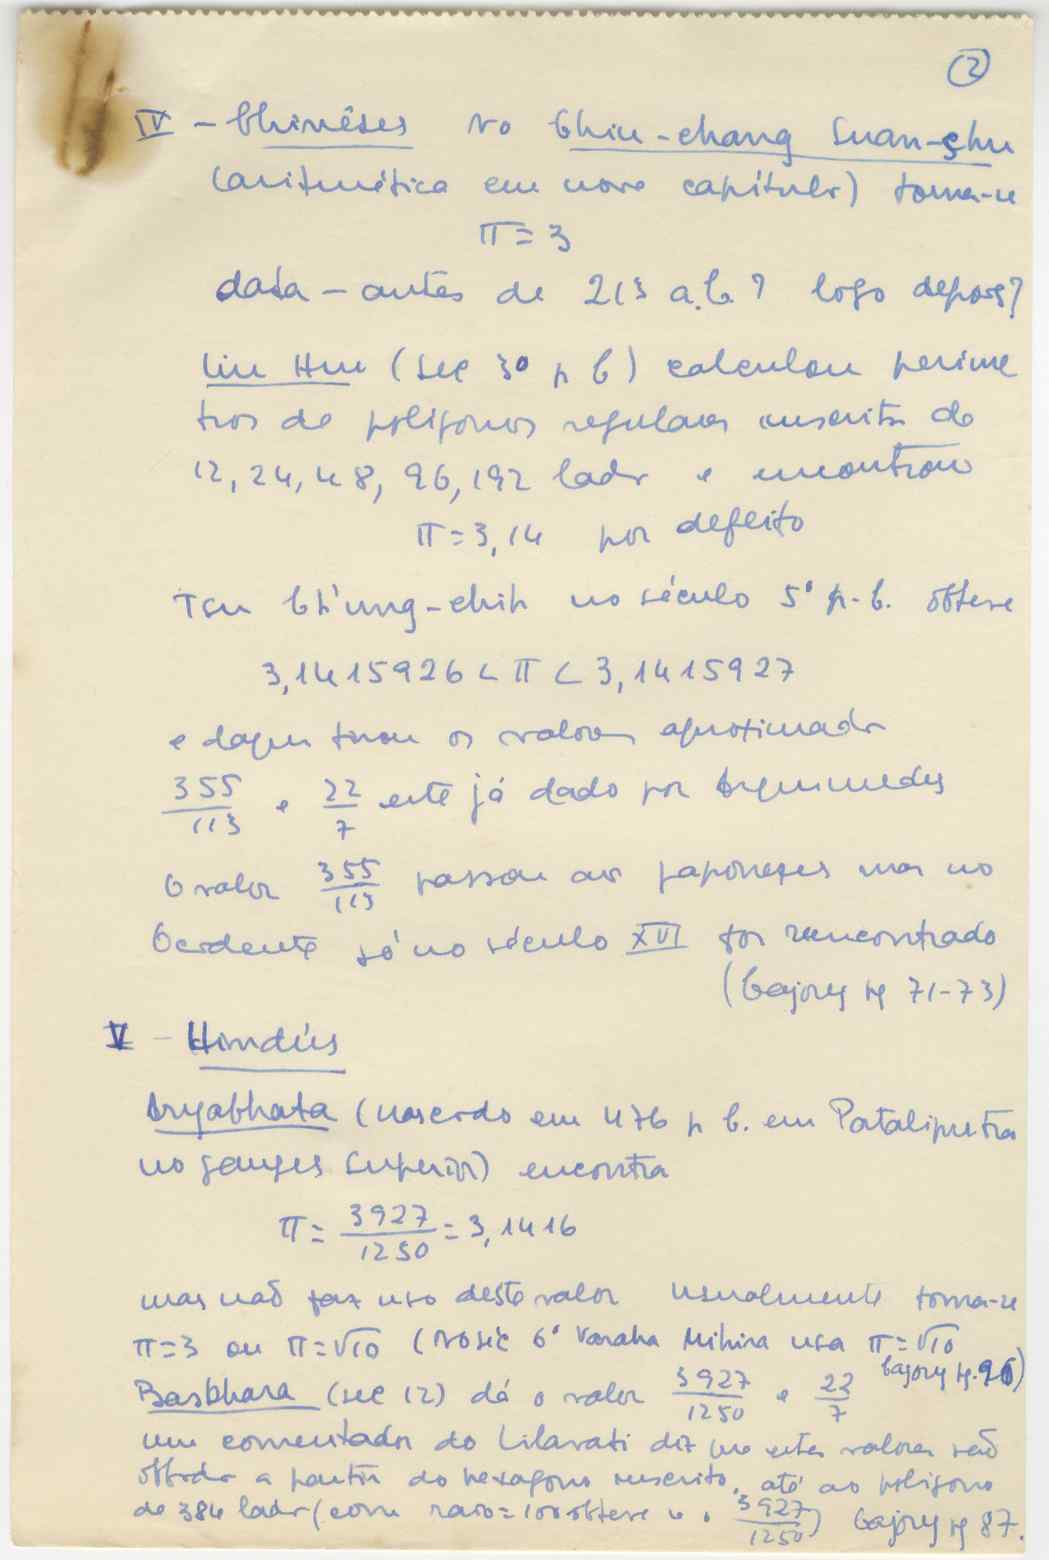 2
IV – Chinêses No Chiu-chang Suan-shu
(aritmética em nove capítulos) toma-se
π = 3
data – antes de 213 a.C.? logo depois?
Liu Hui (sec 3º p C) calculou perime
tros de poligonos regulares inscritos de
12, 24, 48, 96, 192 lados e encontrou
π = 3,14 por defeito
Tsu Ch'ung-chih no século 5º p.C. obteve
3,1415926 < π < 3,1415927
e daqui tirou os valores aproximados
355/113 e 22/7 este já dado por Arquimedes
O valor 355/113 passou aos japoneses mas no
Ocidente só no século XVI foi reencontrado
(Cajory pg 71-73)
V – Hindús
Aryabhata (nascido em 476 p C. em Pataliputra
no Ganges Superior) encontra
π = 3927/1250 = 3,1416
mas não faz uso deste valor usualmente toma-se
π = 3 ou π = √10 (No séc 6º Varaha Mihira usa π = √10
Cajory pg. 96)
Baskhara (sec 12) dá o valor 3927/1250 e 22/7
um comentador do Lilavati diz que estes valores são
obtidos a partir do hexagono inscrito, até ao poligono
de 384 lados (com raio = 100 obteve-se o 3927/1250) Cajory pg 87.